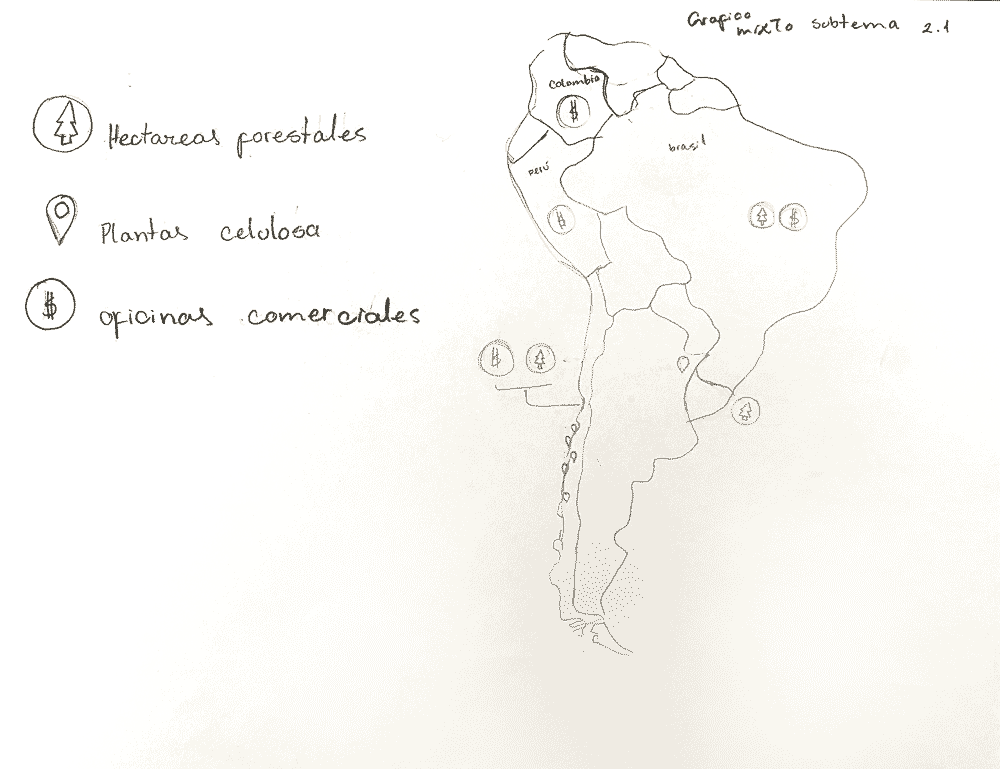 Grafico
mixto subtema 2.1
Hectareas forestales
Plantas celulosa
$ oficinas comerciales
Colombia
$
brasil
perú
$
$
$